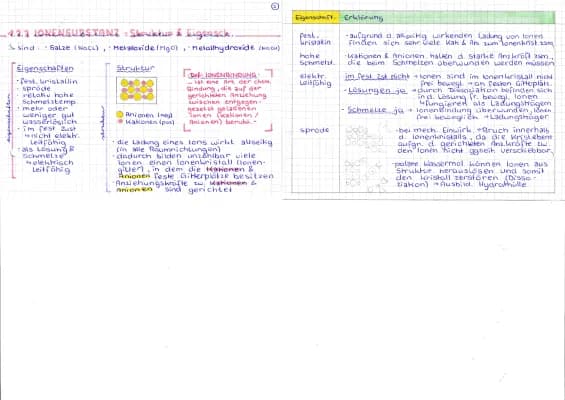 ②
1.2.2 IONENSUBSTANZ - Struktur & Eigensch.
↳ sind: · Salze (NaCl), · Metalloxide (MgO), · Metallhydroxide (NaOH)
Eigenschaften
· fest, kristallin
· spröde
· relativ hohe
Schmelztemp.
· mehr oder
weniger gut
wasserlöslich
· im fest. Zust.
↳ nicht elektr.
leitfähig
· als Lösung &
Schmelze
→ elektrisch
leitfähig
Struktur
Anionen (neg)
Kationen (pos)
Def. IONENBINDUNG:
... ist eine Art der chem.
Bindung, die auf der
gerichteten Anziehung
zwischen entgegen-
gesetzt geladenen
Ionen (Kationen /
Anionen) beruht.
· die Ladung eines Ions wirkt allseitig
(in alle Raumrichtungen)
· dadurch bilden unzählbar viele
Ionen einen Ionenkristall (Ionen-
gitter), in dem die Kationen &
Anionen feste Gitterplätze besitzen
· Anziehungskräfte zw. Kationen &
Anionen sind gerichtet
Eigenschaft. Erklärung
fest, kristallin
· aufgrund d. allseitig wirkenden Ladung von Ionen
finden sich sehr viele Kat & An zum Ionenkrist. zsm.
hohe Schmelzt.
· Kationen & Anionen halten d. starke Anz.kräft zsm.,
die beim Schmelzen überwunden werden müssen
elektr. Leitfähig
im fest. Zst nicht → Ionen sind im Ionenkristall nicht
frei bewegl. → an festen Gitterplätz.
- Lösungen ja → durch Dissoziation befinden sich
in d. Lösung fr. bewegl. Ionen
→ fungieren als Ladungsträgern
- Schmelze ja → Ionenbindung überwunden, Ionen
frei beweglich → Ladungsträger
spröde
· bei mech. Einwirk. → Bruch innerhalb
d. Ionenkristalls, da die Kristallebenen
aufgr. d. gerichteten Anz.kräfte zw.
den Ionen nicht verschiebbar
· polare Wassermol. können Ionen aus
Struktur herauslösen und somit
den Kristall zerstören (Disso-
ziation) → Ausbild. Hydrathülle